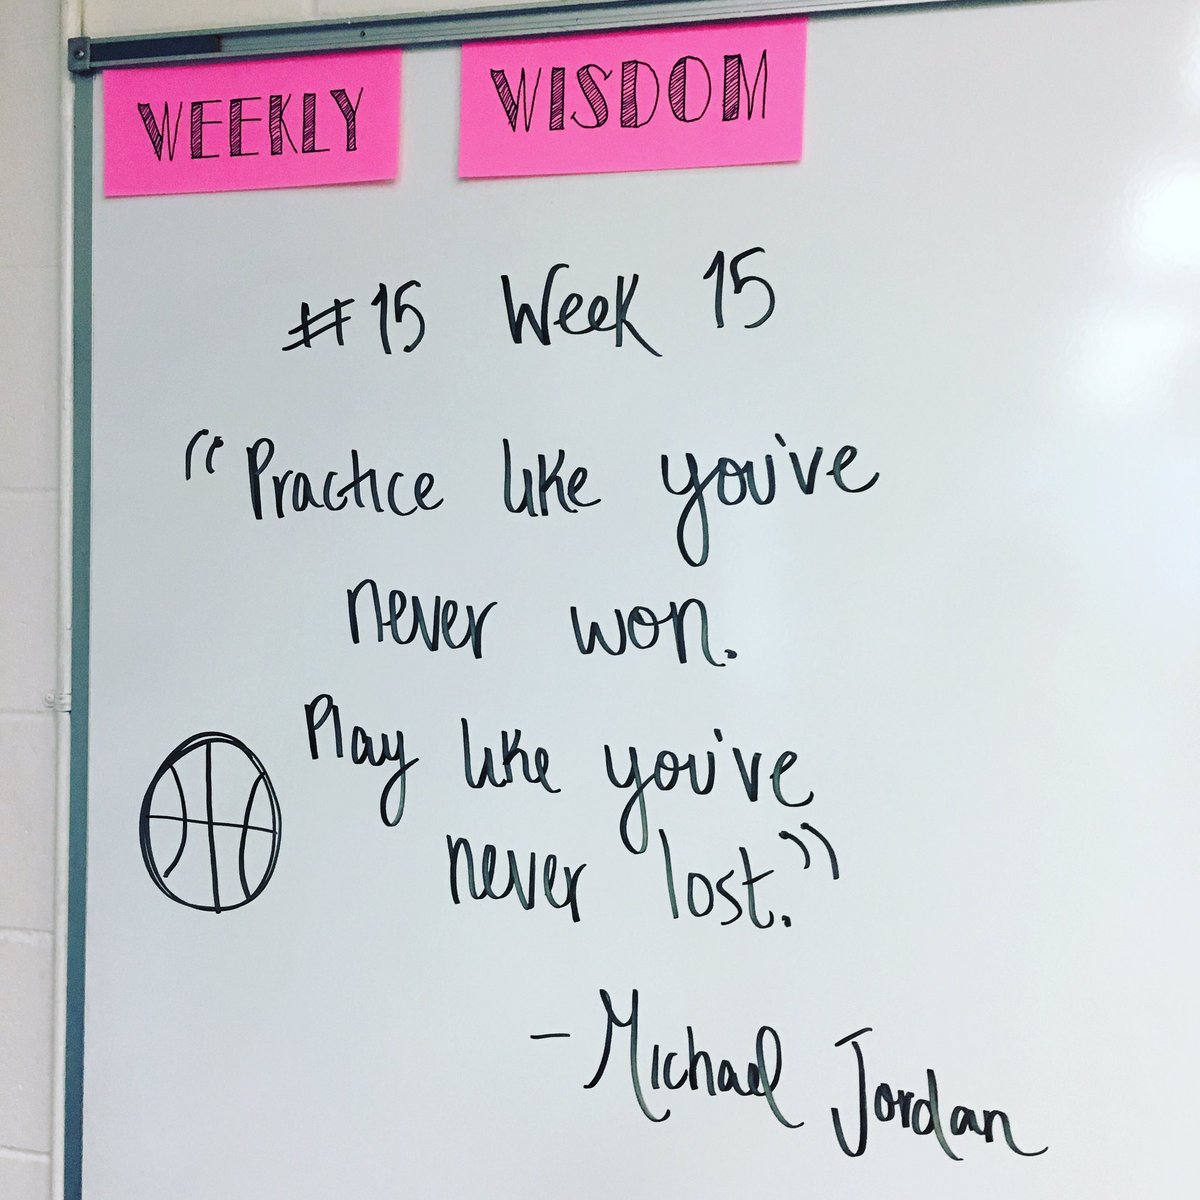 WEEKLY WISDOM
#15 Week 15
"Practice like you've
never won.
Play like you've
never lost."
- Michael Jordan